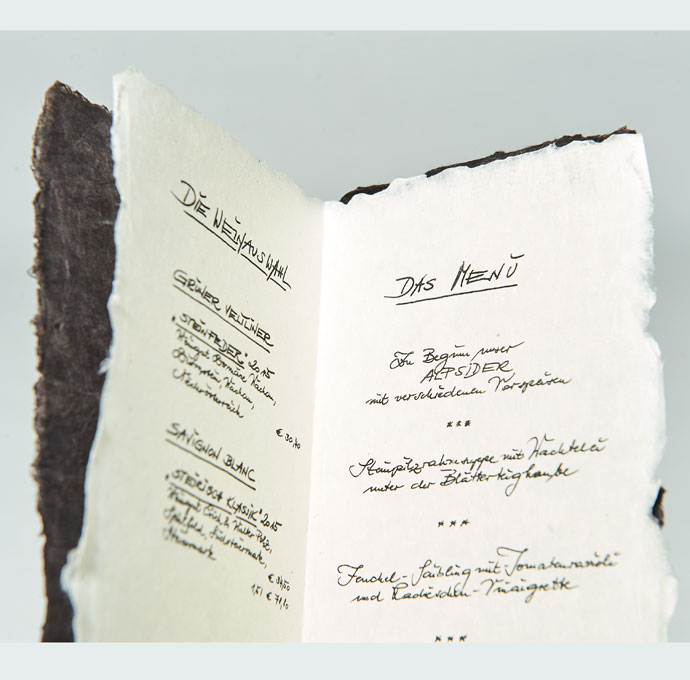 DIE WEINAUSWAHL
GRÜNER VELTLINER
"STEINFEDER" 2015
Weingut Domäne Wachau,
Dürnstein, Wachau,
Niederösterreich
€ 30,10
SAVIGNON BLANC
"STEIRISCH KLASIK" 2015
Weingut Erich & Walter Polz,
Spielfeld, Südsteiermark,
Steiermark
€ 34,50
1,5 l € 71,10
DAS MENÜ
Zu Beginn unser
ALPSIDER
mit verschiedenen Vorspeisen
***
Steinpilzrahmsuppe mit Wachtelei
unter der Blätterteighaube
***
Fenchel-Saibling mit Tomatenravioli
und Radieschen-Vinaigrette
***